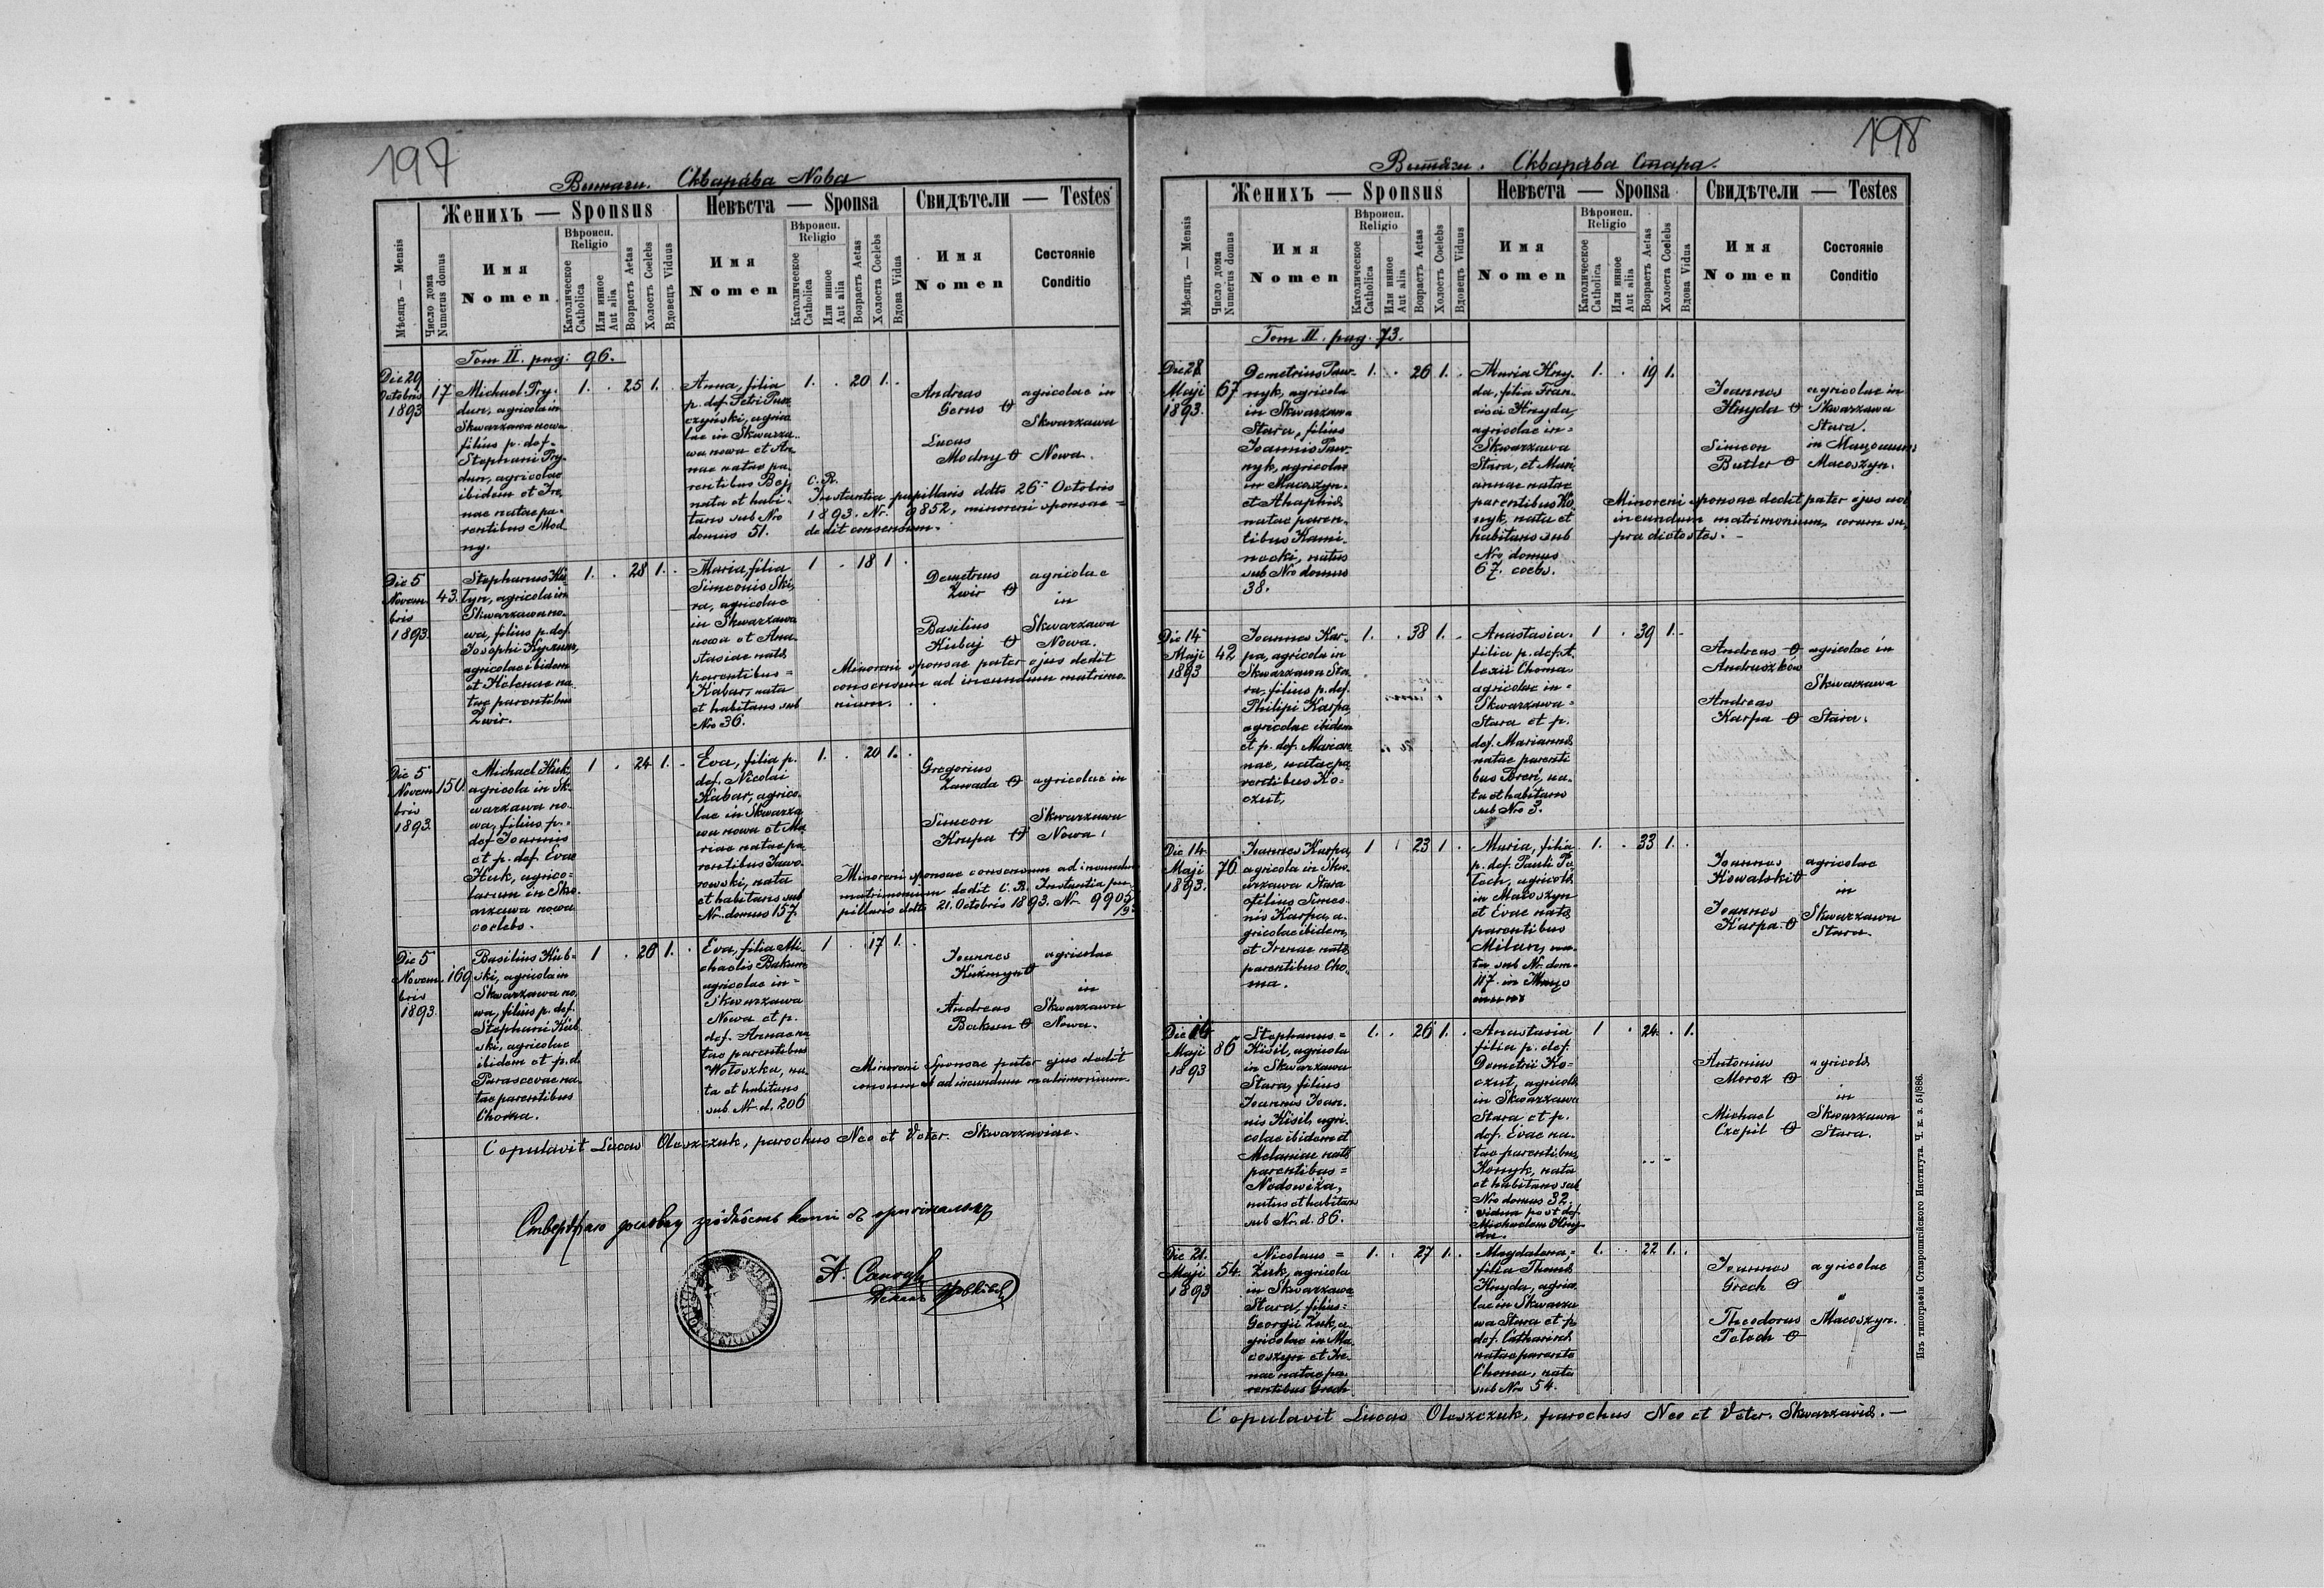 197
Вѣнчаны. Скварѣва Nова
Женихъ — Sponsus
Невѣста — Sponsa
Свидѣтели — Testes
Мѣсяцъ — Mensis
Число дома
Numerus domus
Имя
Nomen
Вѣроисп.
Religio
Католическое
Catholica
Или инное
Aut alia
Возрастъ Aetas
Холостъ Coelebs
Вдовецъ Viduus
Имя
Nomen
Вѣроисп.
Religio
Католическое
Catholica
Или инное
Aut alia
Возрастъ Aetas
Холоста Coelebs
Вдова Vidua
Имя
Nomen
Состояніе
Conditio
Tom II. pag: 96.
Die 29
Octobris
1893
17
Michael Pry-
dun, agricola in
Skwarzawa nowa
filius p. def.
Stephani Pry-
dun, agricolae
ibidem et Ire-
nae natae pa-
rentibus Mod-
ny.
1. . 25 1.
Anna, filia
p. def. Petri Pun
czyński, agrico
lae in Skwarza-
wa nowa et An-
nae natae pa-
rentibus Bej
nata et habi-
tans sub Nro
domus 51.
1. . 20 1. .
Andreas
Gerus
Lucas
Modny
agricolae in
Skwarzawa
Nowa.
C. R.
Instantia pupillaris ddto 26 Octobris
1893. Nr. 9852, minoreni sponsae =
dedit consensum.
Die 5
Novem
bris
1893.
43.
Stephanus Ku
tyn, agricola in
Skwarzawa no-
wa, filius p. def.
Josephi
agricolae ibidem
et Helenae na
tae parentibus
Zwir.
1. . 28 1. .
Maria, filia
Simeonis Ski
ra, agricolae
in Skwarzawa
nowa et Ana-
stasiae natae
parentibus =
Kabar, nata
et habitans sub
Nro 36.
1 . 18 1 .
Demetrius
Zwir
Basilius
Kubaj
agricolae
in
Skwarzawa
Nowa.
Minoreni sponsae pater ejus dedit
consensum ad ineundum matrimo-
nium.
Die 5
Novem
bris
1893.
150.
Michael Huk,
agricola in Sk-
warzawa no-
wa, filius p.
def Joannis
et p. def. Evae
Huk, agrico-
larum in Skw
arzawa nowa
coelebs.
1 . 24 1. .
Eva, filia p.
def. Nicolai
Kabar, agrico-
lae in Skwarza
wa nowa et Ma
riae natae pa
rentibus Jawo-
rowski, nata
et habitans sub
Nr. domus 157.
1. . 20 1. .
Gregorius
Zawada
Simeon
Krupa
agricolae in
Skwarzawa
Nowa.
Minoreni sponsae consensum ad ineundum
matrimonium dedit C. R. Instantia pu-
pillaris ddto 21. Octobris 1893. Nr. 9905
Die 5
Novem.
bris
1893.
169
Basilius Kub-
ski, agricola in
Skwarzawa no
wa, filius p. def.
Stephani Kub
ski, agricolae
ibidem et p. d.
Parascevae na-
tae parentibus
Choma.
1 . 26 1. .
Eva, filia Mi-
chaelis Bakum
agricolae in =
Skwarzawa
Nowa et p.
def. Annae na
tae parentibus
Wołoszka, na-
ta et habitans
sub. Nr. d. 206
1 . 17 1. .
Joannes
Kuzmyn
Andreas
Bakum
agricolae
in
Skwarzawa
Nowa.
Minoreni Sponsae pater ejus dedit
consensum ad ineundum matrimonium.
Copulavit Lucas Oleszczuk, parochus Neo et Veter. Skwarzaviae.
198
Вѣнчаны. Скварѣва Стара.
Женихъ — Sponsus
Невѣста — Sponsa
Свидѣтели — Testes
Мѣсяцъ — Mensis
Число дома
Numerus domus
Имя
Nomen
Вѣроисп.
Religio
Католическое
Catholica
Или инное
Aut alia
Возрастъ Aetas
Холостъ Coelebs
Вдовецъ Viduus
Имя
Nomen
Вѣроисп.
Religio
Католическое
Catholica
Или инное
Aut alia
Возрастъ Aetas
Холоста Coelebs
Вдова Vidua
Имя
Nomen
Состояніе
Conditio
Tom II. pag. 73.
Die 28
Maji
1893.
67
Demetrius Paw-
nyk, agricola
in Skwarzawa
Stara, filius
Joannis Paw-
nyk, agricolae
in Macoszyn
et Ahaphiae
natae paren-
tibus Kami-
noski, natus
sub Nro domus
38.
1. . 26 1. .
Maria Hny-
da, filia Fran-
cisci Hnyda,
agricolae in =
Skwarzawa
Stara, et Mari
annae natae
parentibus Ko
nyk, nata et
habitans sub
Nro domus
67. coebs.
1. . 19 1.
Joannes
Hnyda
Simeon
Butler
agricolae in
Skwarzawa
Stara.
in
Macoszyn.
Minoreni sponsae dedit pater ejus ad
ineundum matrimonium, coram su-
pra dictos tes. -
Die 14
Maji
1893
42
Joannes Kar-
pa, agricola in
Skwarzawa Sta
ra, filius p. def.
Philipi Karpa,
agricolae ibidem
et p. def. Marian
nae, natae pa
rentibus Ko-
czut,
1. . 38 1. .
Anastasia.
filia p. def. A
lexii Choma
agricolae in =
Skwarzawa =
Stara et p.
def. Mariannae
natae parenti
bus Breri, na-
ta et habitans
sub Nro 3.
1 . 39 1. -
Andreas
Andruszków
Andreas
Karpa
agricolae in
Skwarzawa
Stara.
Die 14
Maji
1893.
70
Joannes Karpa,
agricola in Skw-
arzawa Stara
filius Simeo-
nis Karpa, a-
gricolae ibidem,
et Irenae natae
parentibus Cho-
ma.
1 . 23 1 .
Maria, filia
p. def. Pauli Pe
toch, agricolae
in Macoszyn
et Evae natae
parentibus
Milan, na-
ta sub Nr. dom.
117. in
1. . 33 1. .
Joannes
Kowalski
Joannes
Karpa
agricolae
in
Skwarzawa
Stara.
Maji
1893
86
Stephanus =
Kisil, agricola
in Skwarzawa
Stara, filius
Joannis Joan-
nis Kisil, agri-
colae ibidem et
Melaniae natae
parentibus =
Nedowiza,
natus et habitans
sub Nr. d. 86.
1. . 26 1. .
Anastasia
filia p. def.
Demetrii Ko-
czut, agricolae
in Skwarzawa
Stara et p.
def. Evae na-
tae parentibus
Konyk, nata
et habitans sub
Nro domus 32.
vidua post def.
Michaelem Hny-
da.
1 . 24 . 1.
Antonius
Moroz
Michael
Czepil
agricolae
in
Skwarzawa
Stara.
Die 21.
Maji
1893
54.
Nicolaus =
Żuk, agricola
in Skwarzawa
Stara, filius =
Georgii Żuk, a
gricolae in Ma
coszyn et Ire-
nae natae pa-
rentibus Grech
1. . 27 1. .
Magdalena, =
filia Thomae
Hnyda, agrico
lae in Skwarza
wa Stara et p.
def. Catharinae
natae parenti
Choma, nata
sub Nro 54.
1. . 22 1. .
Joannes
Grech
Theodorus
Petoch
agricolae
"
Macoszyn.
Copulavit Lucas Oleszczuk, parochus Neo et Veter. Skwarzaviae. —
Изъ типографіи Ставропигійского Института. Ч. к. з. 51/886.